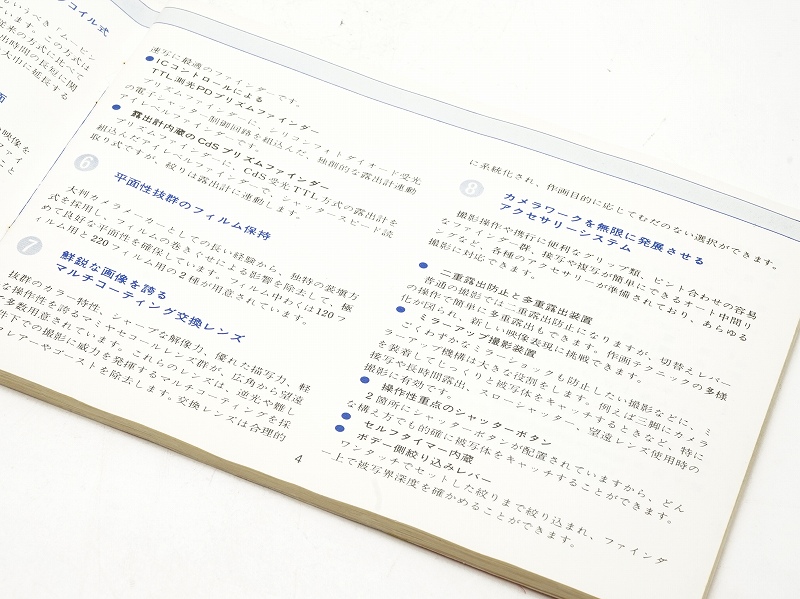 コイル式
もいうべき「ムービン
ています。この方式は
従来の方式に比べて
出時間の長短に関
大巾に延長する
面
映像を
ファイ
こと
速写に最適のファインダーです。
●ICコントロールによる
TTL測光PDプリズムファインダー
プリズムファインダーに、シリコンフォトダイオード受光
の電子シャッター制御回路を組込んだ、独創的な露出計連動
アイレベルファインダーです。
●露出計内蔵のCdSプリズムファインダー
プリズムファインダーに、CdS受光TTL方式の露出計を
組込んだアイレベルファインダーで、シャッタースピード読
取り式ですが、絞りは露出計に連動します。
6 平面性抜群のフィルム保持
大判カメラメーカーとしての長い経験から、独特の装填方
式を採用し、フィルムの巻きぐせによる影響を除去して、極
めて良好な平面性を確保しています。フィルム中わくは120フ
ィルム用と220フィルム用の2種が用意されています。
7 鮮鋭な画像を誇る
マルチコーティング交換レンズ
抜群のカラー特性、シャープな解像力、優れた描写力、軽
な操作性を誇るマミヤセコールレンズ群が、広角から望遠
で多数用意されています。これらのレンズは、逆光や難し
件下での撮影に威力を発揮するマルチコーティングを採
フレアーやゴーストを除去します。交換レンズは合理的
4
に系統化され、作画目的に応じてむだのない選択ができます。
8 カメラワークを無限に発展させる
アクセサリーシステム
撮影操作や携行に便利なグリップ類、ピント合わせの容易
なファインダー群、接写や複写が簡単にできるオート中間リ
ングなど、各種のアクセサリーが準備されており、あらゆる
撮影に対応できます。
●二重露出防止と多重露出装置
普通の撮影では二重露出防止になりますが、切替えレバー
の操作で簡単に多重露出もできます。作画テクニックの多様
化が図られ、新しい映像表現に挑戦できます。
●ミラーアップ撮影装置
ごくわずかなミラーショックも防止したい撮影などに、ミ
ラーアップ機構は大きな役割をします。例えば三脚にカメラ
を装着してじっくりと被写体をキャッチするときなど、特に
接写や長時間露出、スローシャッター、望遠レンズ使用時の
撮影に有効です。
●操作性重点のシャッターボタン
2箇所にシャッターボタンが配置されていますから、どん
な構え方でも的確に被写体をキャッチすることができます。
●セルフタイマー内蔵
●ボデー側絞り込みレバー
ワンタッチでセットした絞りまで絞り込まれ、ファインダ
ー上で被写界深度を確かめることができます。